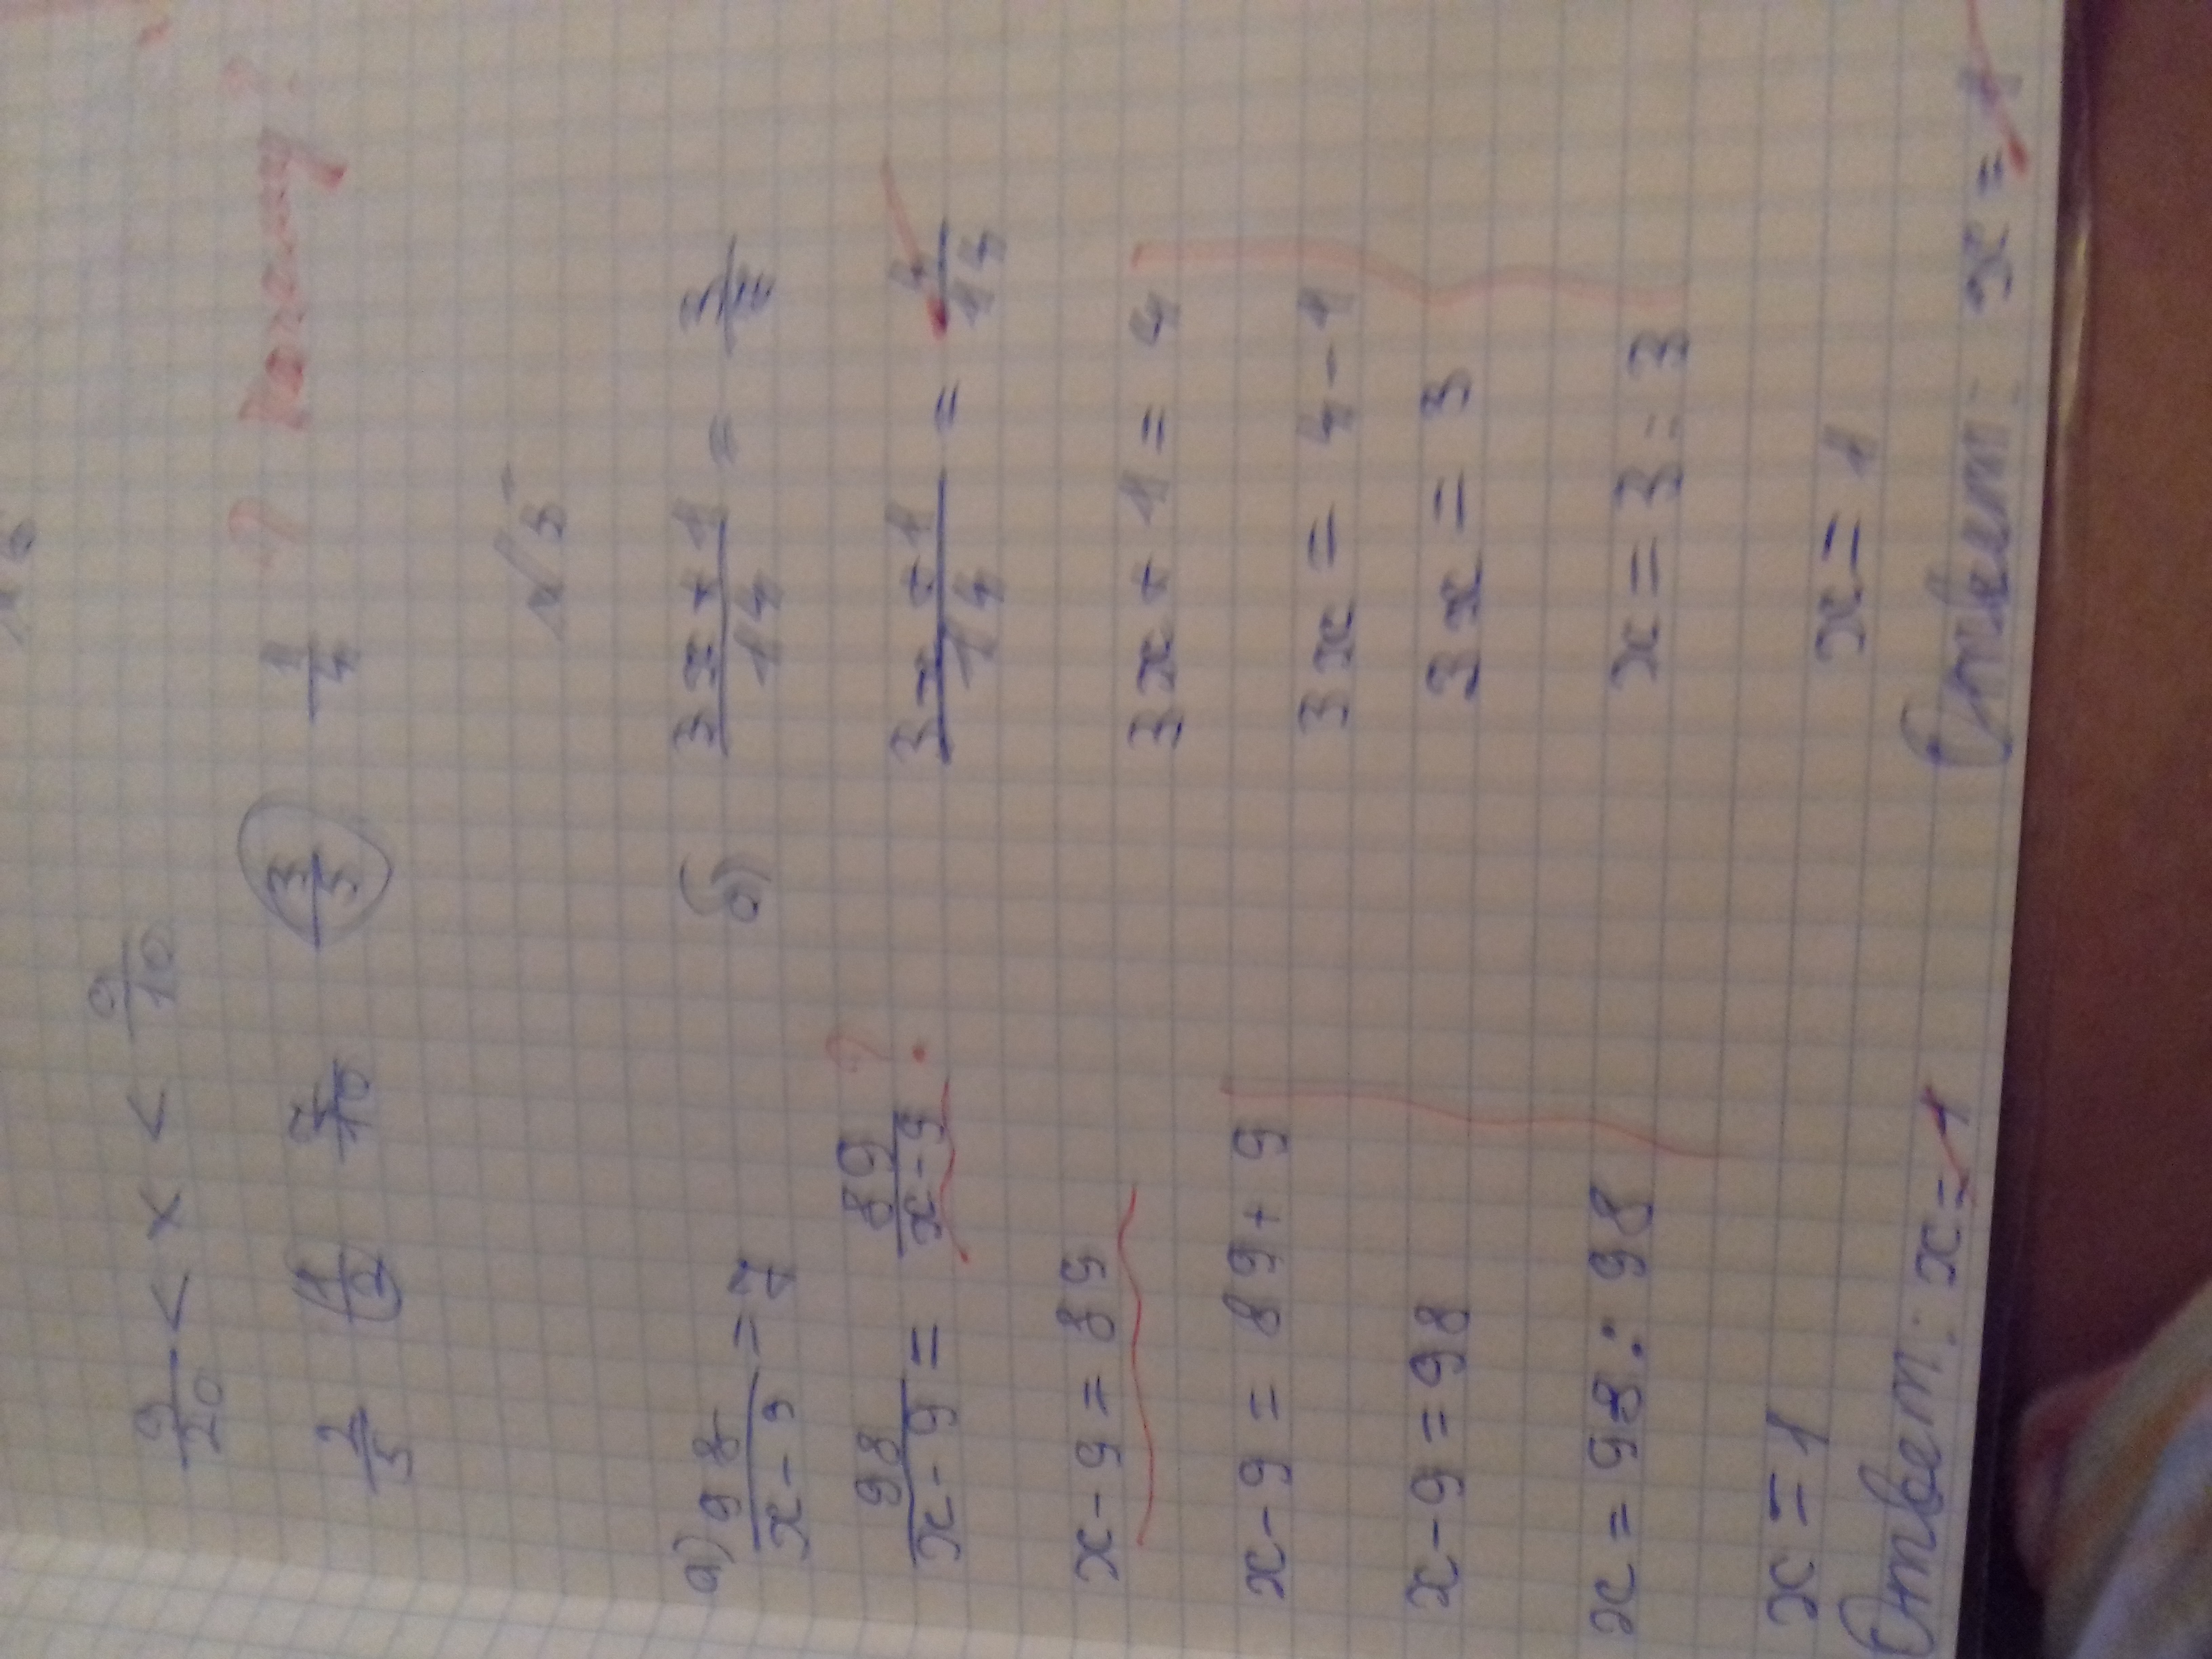 9/20 < x < 9/10
2/5 1/2 7/10 3/5 1/4 ? почему?
№5
а) 98/(x-9) = 7
98/(x-9) = 89/(x-9) ?
x-9=89
x-9=89+9
x-9=98
x=98:98
x=1
Ответ: x=1
б) (3x+1)/14 =
(3x+1)/14 = 4/14
3x+1=4
3x=4-1
3x=3
x=3:3
x=1
Ответ: x=1